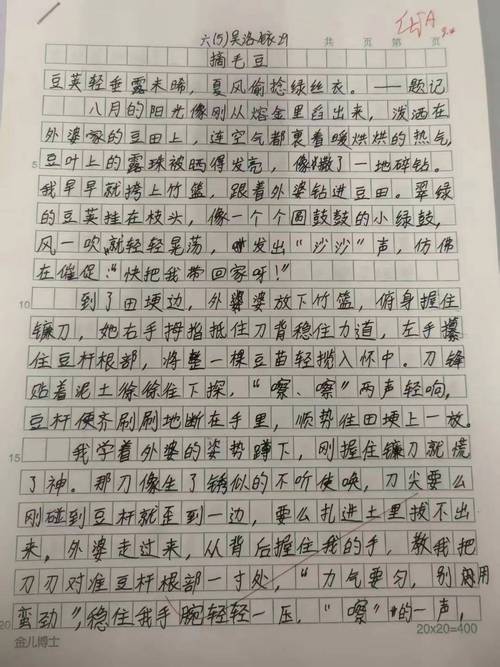 六(5)吴洛 29
共 页 第 页
摘毛豆
豆荚轻垂露未晞，夏风偷捻绿丝衣。——题记
八月的阳光像刚从熔金里舀出来，泼洒在
外婆家的豆田上，连空气都裹着暖烘烘的热气，
5
豆叶上的露珠被晒得发亮，像撒了一地碎钻。
我早早就挎上竹篮，跟着外婆钻进豆田。翠绿
的豆荚挂在枝头，像一个个圆鼓鼓的小绿鼓，
风一吹就轻轻晃荡，发出“沙沙”声，仿佛
在催促：“快把我带回家呀！”
10
到了田埂边，外婆婆放下竹篮，俯身握住
镰刀，她右手拇指抵住刀背稳住力道，左手攥
住豆杆根部，将整一棵豆苗轻揽入怀中。刀锋
贴着泥土徐徐往下探，“嚓、嚓”两声轻响，
豆杆便齐刷刷地断在手里，顺势往田埂上一放。
15
我学着外婆的姿势蹲下，刚握住镰刀就慌
了神。那刀像生了锈似的不听使唤，刀尖要么
刚碰到豆杆就歪到一边，要么扎进土里拔不出
来。外婆走过来，从背后握住我的手，教我把
刀刃对准豆杆根部一寸处，“力气要匀，别用
20
蛮劲”，稳住我手腕轻轻一压，“嚓”的一声，
金儿博士
20×20=400